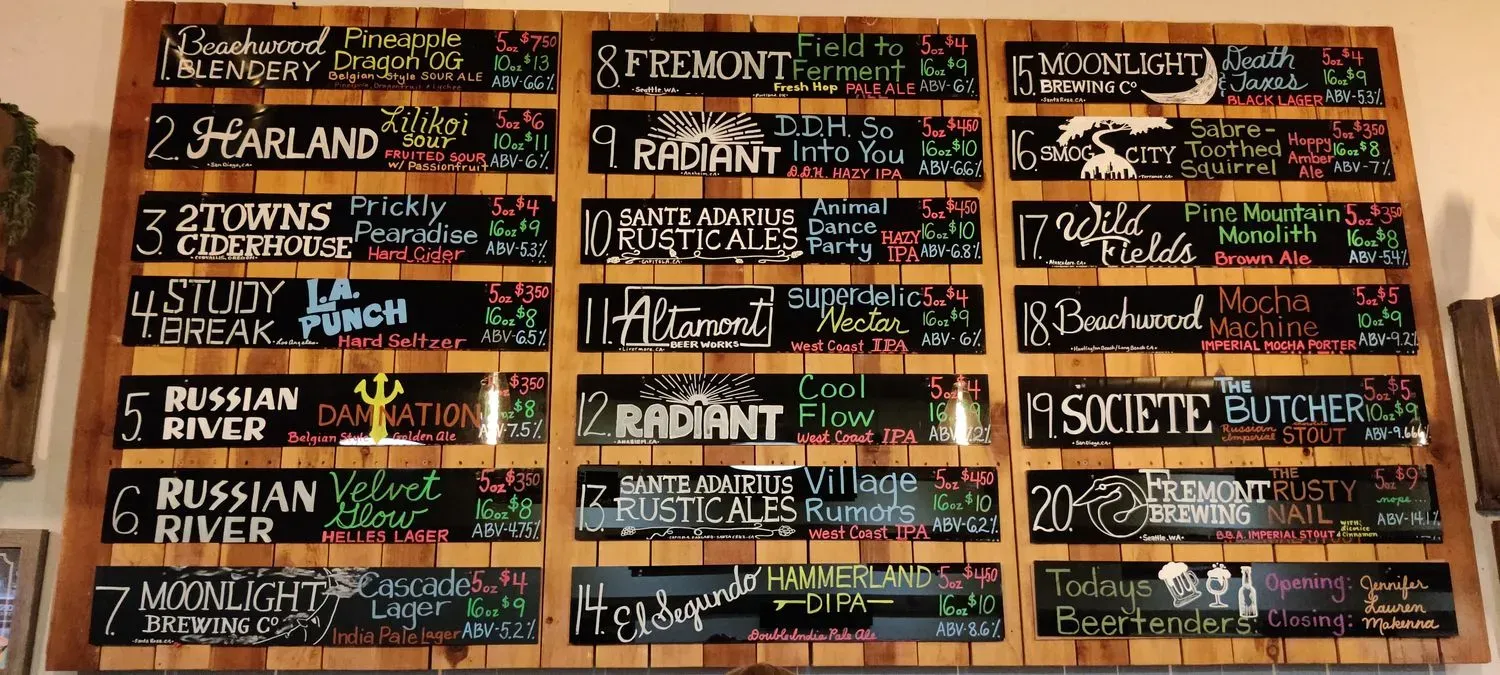 1. Beachwood BLENDERY Pineapple Dragon OG Belgian Style SOUR ALE Pineapple, Dragonfruit & Lychee 5oz $750 10oz $13 ABV-6.6%
2. HARLAND San Diego, CA Lilikoi sour FRUITED SOUR w/ Passionfruit 5oz $6 10oz $11 ABV-6%
3. 2TOWNS CIDERHOUSE CORVALLIS, OREGON Prickly Pearadise Hard Cider 5oz $4 16oz $9 ABV-5.3%
4. STUDY BREAK Los Angeles L.A. PUNCH Hard Seltzer 5oz $350 16oz $8 ABV-6.5%
5. RUSSIAN RIVER DAMNATION Belgian Style Golden Ale $350 $8 7.5%
6. RUSSIAN RIVER Velvet Glow HELLES LAGER 5oz $350 16oz $8 ABV-4.75%
7. MOONLIGHT BREWING Co Santa Rosa, CA Cascade Lager India Pale Lager 5oz $4 16oz $9 ABV-5.2%
8 FREMONT Seattle, WA Field to Ferment Fresh Hop PALE ALE 5oz $4 16oz $9 ABV-6%
9. RADIANT Anaheim, CA D.D.H. So Into You D.D.H. HAZY IPA 5oz $450 16oz $10 ABV-6.6%
10. SANTE ADARIUS RUSTIC ALES CAPITOLA, CA Animal Dance Party HAZY IPA 5oz $450 16oz $10 ABV-6.8%
11. Altamont BEER WORKS Livermore, CA Superdelic Nectar West Coast IPA 5oz $4 16oz $9 ABV-6%
12. RADIANT ANAHEIM, CA Cool Flow West Coast IPA 5oz $4 16 ABV
13. SANTE ADAIRIUS RUSTIC ALES Village Rumors West Coast IPA 5oz $450 16oz $10 ABV-6.2%
14. El Segundo HAMMERLAND DIPA Double India Pale Ale 5oz $450 16oz $10 ABV-8.6%
15. MOONLIGHT BREWING Co Santa Rosa, CA Death & Taxes BLACK LAGER 5oz $4 16oz $9 ABV-5.3%
16. SMOG CITY Torrance, CA Sabre-Toothed Squirrel Hoppy Amber Ale 5oz $350 16oz $8 ABV-7%
17. Wild Fields Atascadero, CA Pine Mountain Monolith Brown Ale 5oz $350 16oz $8 ABV-5.4%
18. Beachwood Huntington Beach/Long Beach CA Mocha Machine IMPERIAL MOCHA PORTER 5oz $5 10oz $9 ABV-9.2%
19. SOCIETE San Diego, CA THE BUTCHER Russian Imperial STOUT 5oz $5 10oz $9 ABV-9.666
20. FREMONT BREWING Seattle, WA THE RUSTY NAIL B.B.A. IMPERIAL STOUT WITH: Licorice & Cinnamon 5oz $9 nope... ABV-14.1%
Todays Beertenders: Opening: Jennifer Lauren Closing: Makenna